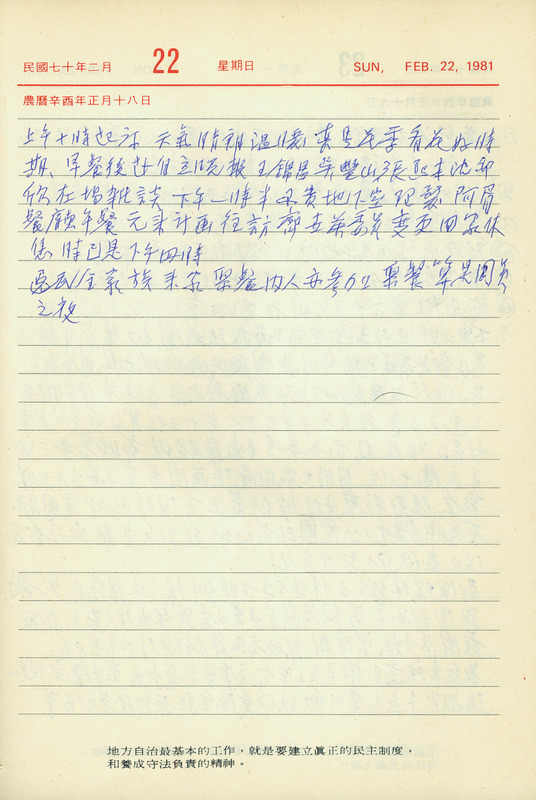 民國七十年二月 22 星期日 SUN, FEB. 22, 1981
農曆辛酉年正月十八日
上午十時起床 天氣晴朗溫暖 真是花季看花好時
期、早餐後赴自立晚報 王錦昌 吳豐山 張
欣在場雜談 下午一時半 貴地下室理髮 阿眉
餐廳午餐 元來計画往訪 齊委員 變更回家休
息 時已是下午四時
全家族来家 聚餐 内人亦參加 聚餐 算是團員
之夜
地方自治最基本的工作，就是要建立眞正的民主制度，
和養成守法負責的精神。